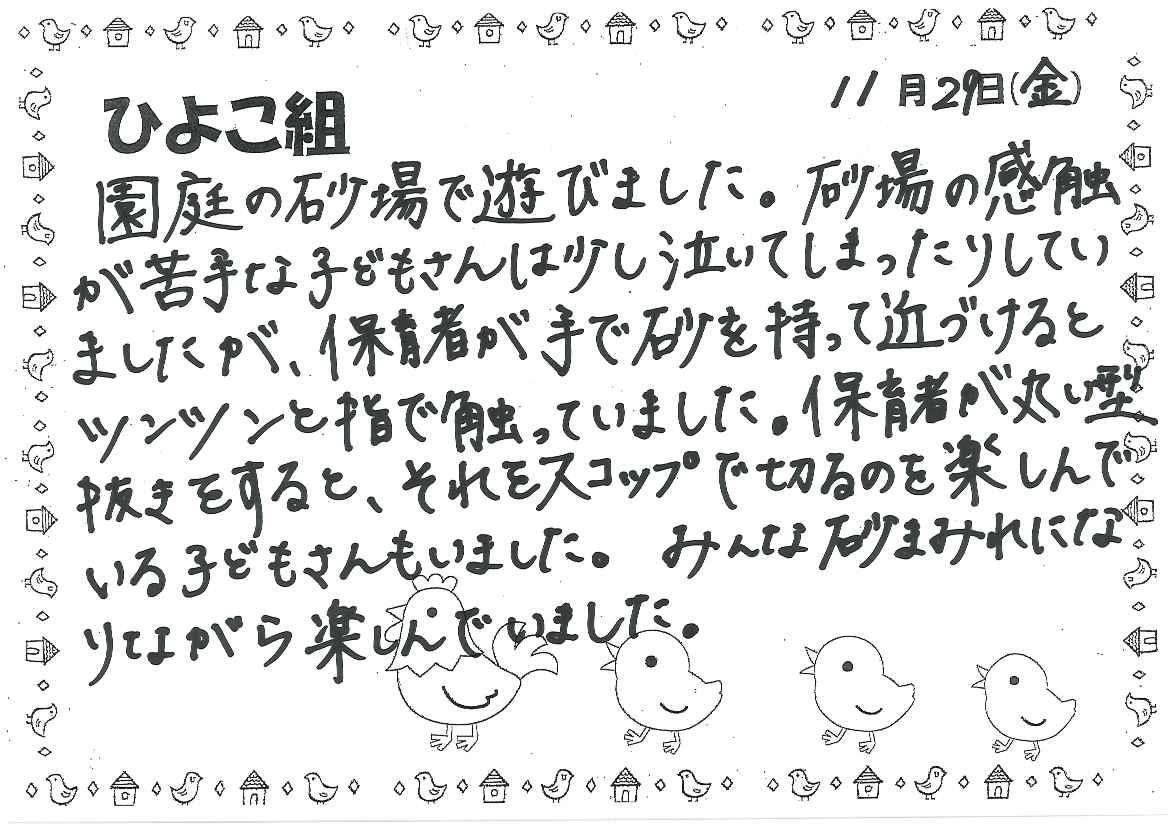 11月29日(金)
ひよこ組
園庭の砂場で遊びました。砂場の感触
が苦手な子どもさんは少し泣いてしまったりしてい
ましたが、保育者が手で砂を持って近づけると
ツンツンと指で触っていました。保育者が丸い型
抜きをすると、それをスコップで切るのを楽しんで
いる子どもさんもいました。みんな砂まみれにな
りながら楽しんでいました。